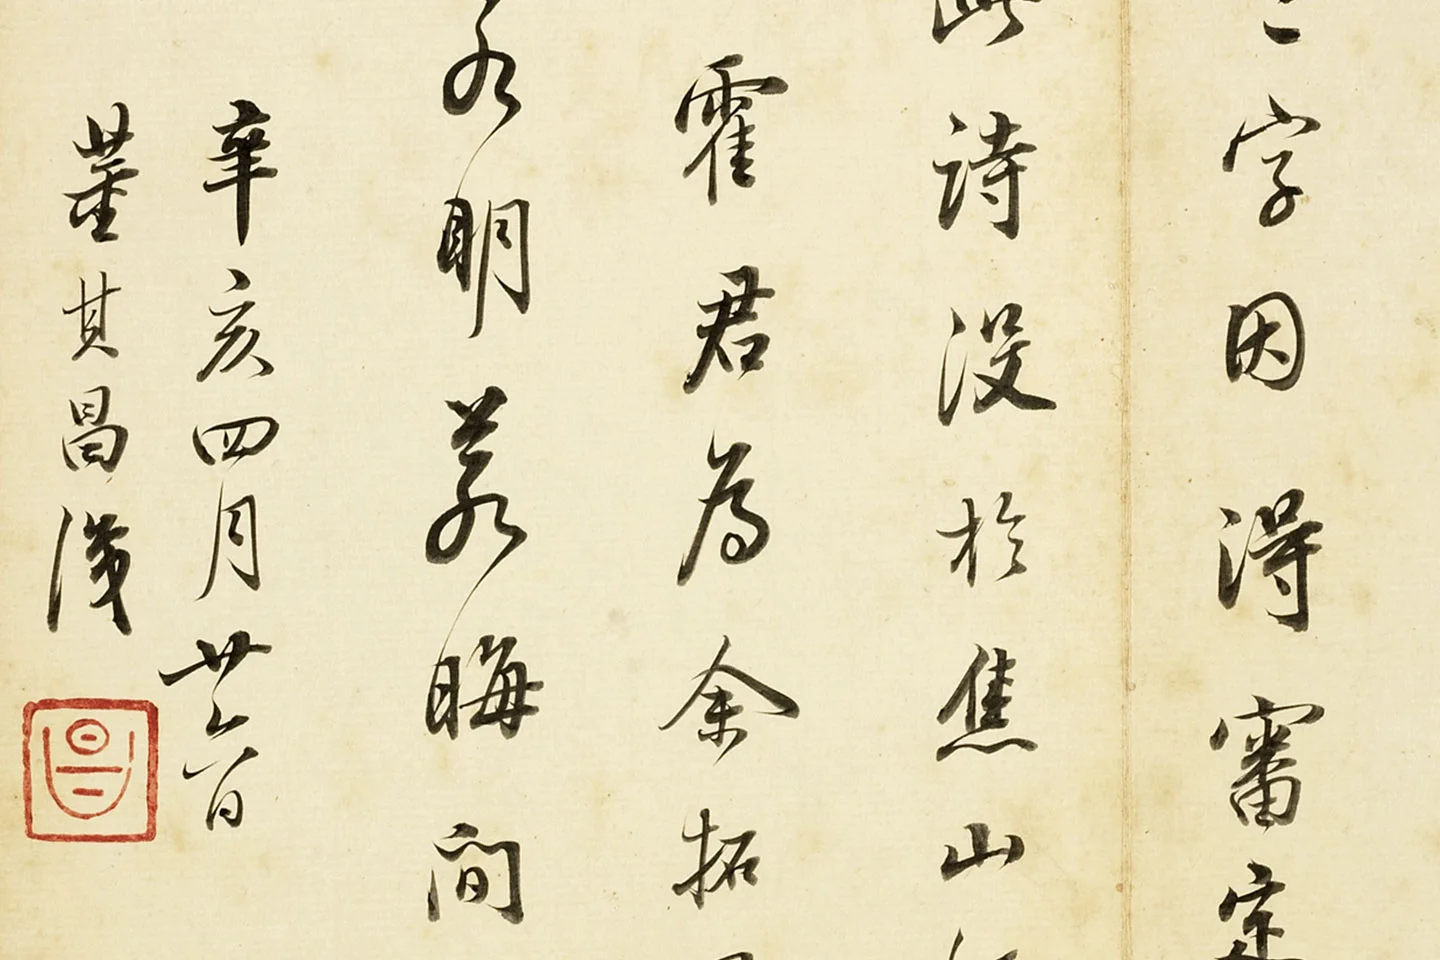 二字因得審定
此詩沒於焦山
霍君為余拓
水明若晦間
辛亥四月廿六日
董其昌識